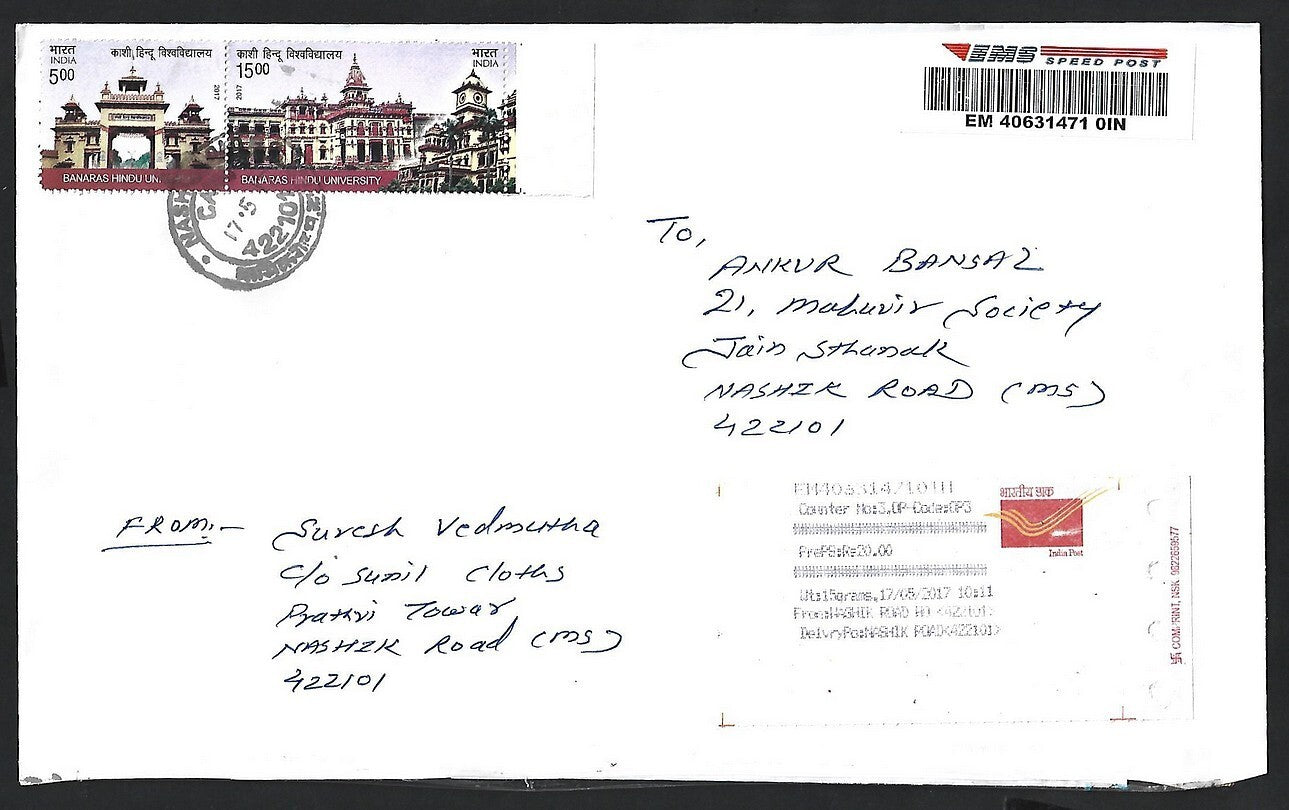 भारत
INDIA
500
काशी हिन्दू विश्वविद्यालय
2017
BANARAS HINDU
काशी हिन्दू विश्वविद्यालय
1500
2017
भारत
INDIA
BANARAS HINDU UNIVERSITY
NASH
CA
17·5
422101
EMS SPEED POST
EM 40631471 0IN
To,
ANKUR BANSAL
21, Mahavir Society
Jain Sthanak
NASHIK ROAD (MS)
422101
FROM:-
Suresh Vedmutha
C/o Sunil Cloths
Prathvi Towar
NASHIK Road (MS)
422101
Counter No:3,OP-Code:OP3
PrePS:Rs20.00
Wt:15grams,17/05/2017 10:11
From:NASHIK ROAD HO <422101>
DelvryPo:NASHIK ROAD<422101>
भारतीय डाक
India Post
COMPRINT, NSK 9822659577